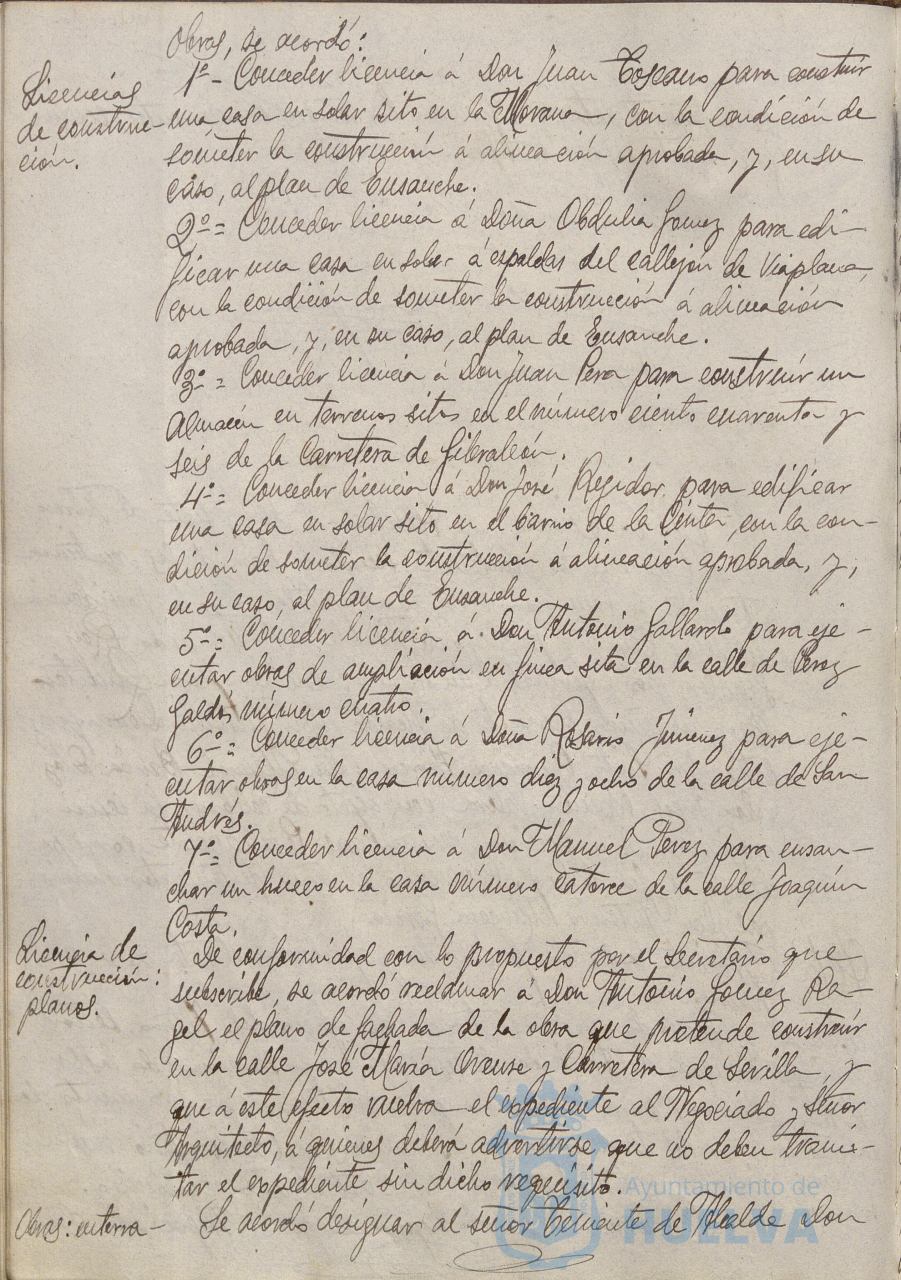 Obras, se acordó:
Licencias
de construc-
ción.
1º - Conceder licencia á Don Juan Toscano para construir
una casa en solar sito en la Morana, con la condición de
someter la construcción á alineación aprobada, y, en su
caso, al plan de Ensanche.
2º = Conceder licencia á Doña Obdulia Gomez para edi-
ficar una casa en solar á espaldas del callejón de Viaplana,
con la condición de someter la construcción á alineación
aprobada, y, en su caso, al plan de Ensanche.
3º = Conceder licencia á Don Juan Pera para construir un
Almacén en terrenos sitos en el número ciento cuarenta y
seis de la Carretera de Gibraleón.
4º = Conceder licencia á Don José Regidor para edificar
una casa en solar sito en el barrio de la Cinta, con la con-
dición de someter la construcción á alineación aprobada, y,
en su caso, al plan de Ensanche.
5º = Conceder licencia á Don Antonio Gallardo para eje-
cutar obras de ampliación en finca sita en la calle de Perez
Galdos número cuatro.
6º = Conceder licencia á Doña Rosario Jimenez para eje-
cutar obras en la casa número diez y ocho de la calle de San
Andrés.
7º = Conceder licencia á Don Manuel Perez para ensan-
char un hueco en la casa número catorce de la calle Joaquín
Costa.
Licencia de
construcción:
planos.
De conformidad con lo propuesto por el Secretario que
subscribe, se acordó reclamar á Don Antonio Gomez Ra-
gel el plano de fachada de la obra que pretende construir
en la calle José María Orense y Carretera de Sevilla, y
que á este efecto vuelva el expediente al Negociado y Señor
Arquitecto, á quienes deberá advertirse que no deben trami-
tar el expediente sin dicho requisito.
Obras: enterra-
Se acordó designar al señor Teniente de Alcalde Don
Ayuntamiento de
HUELVA